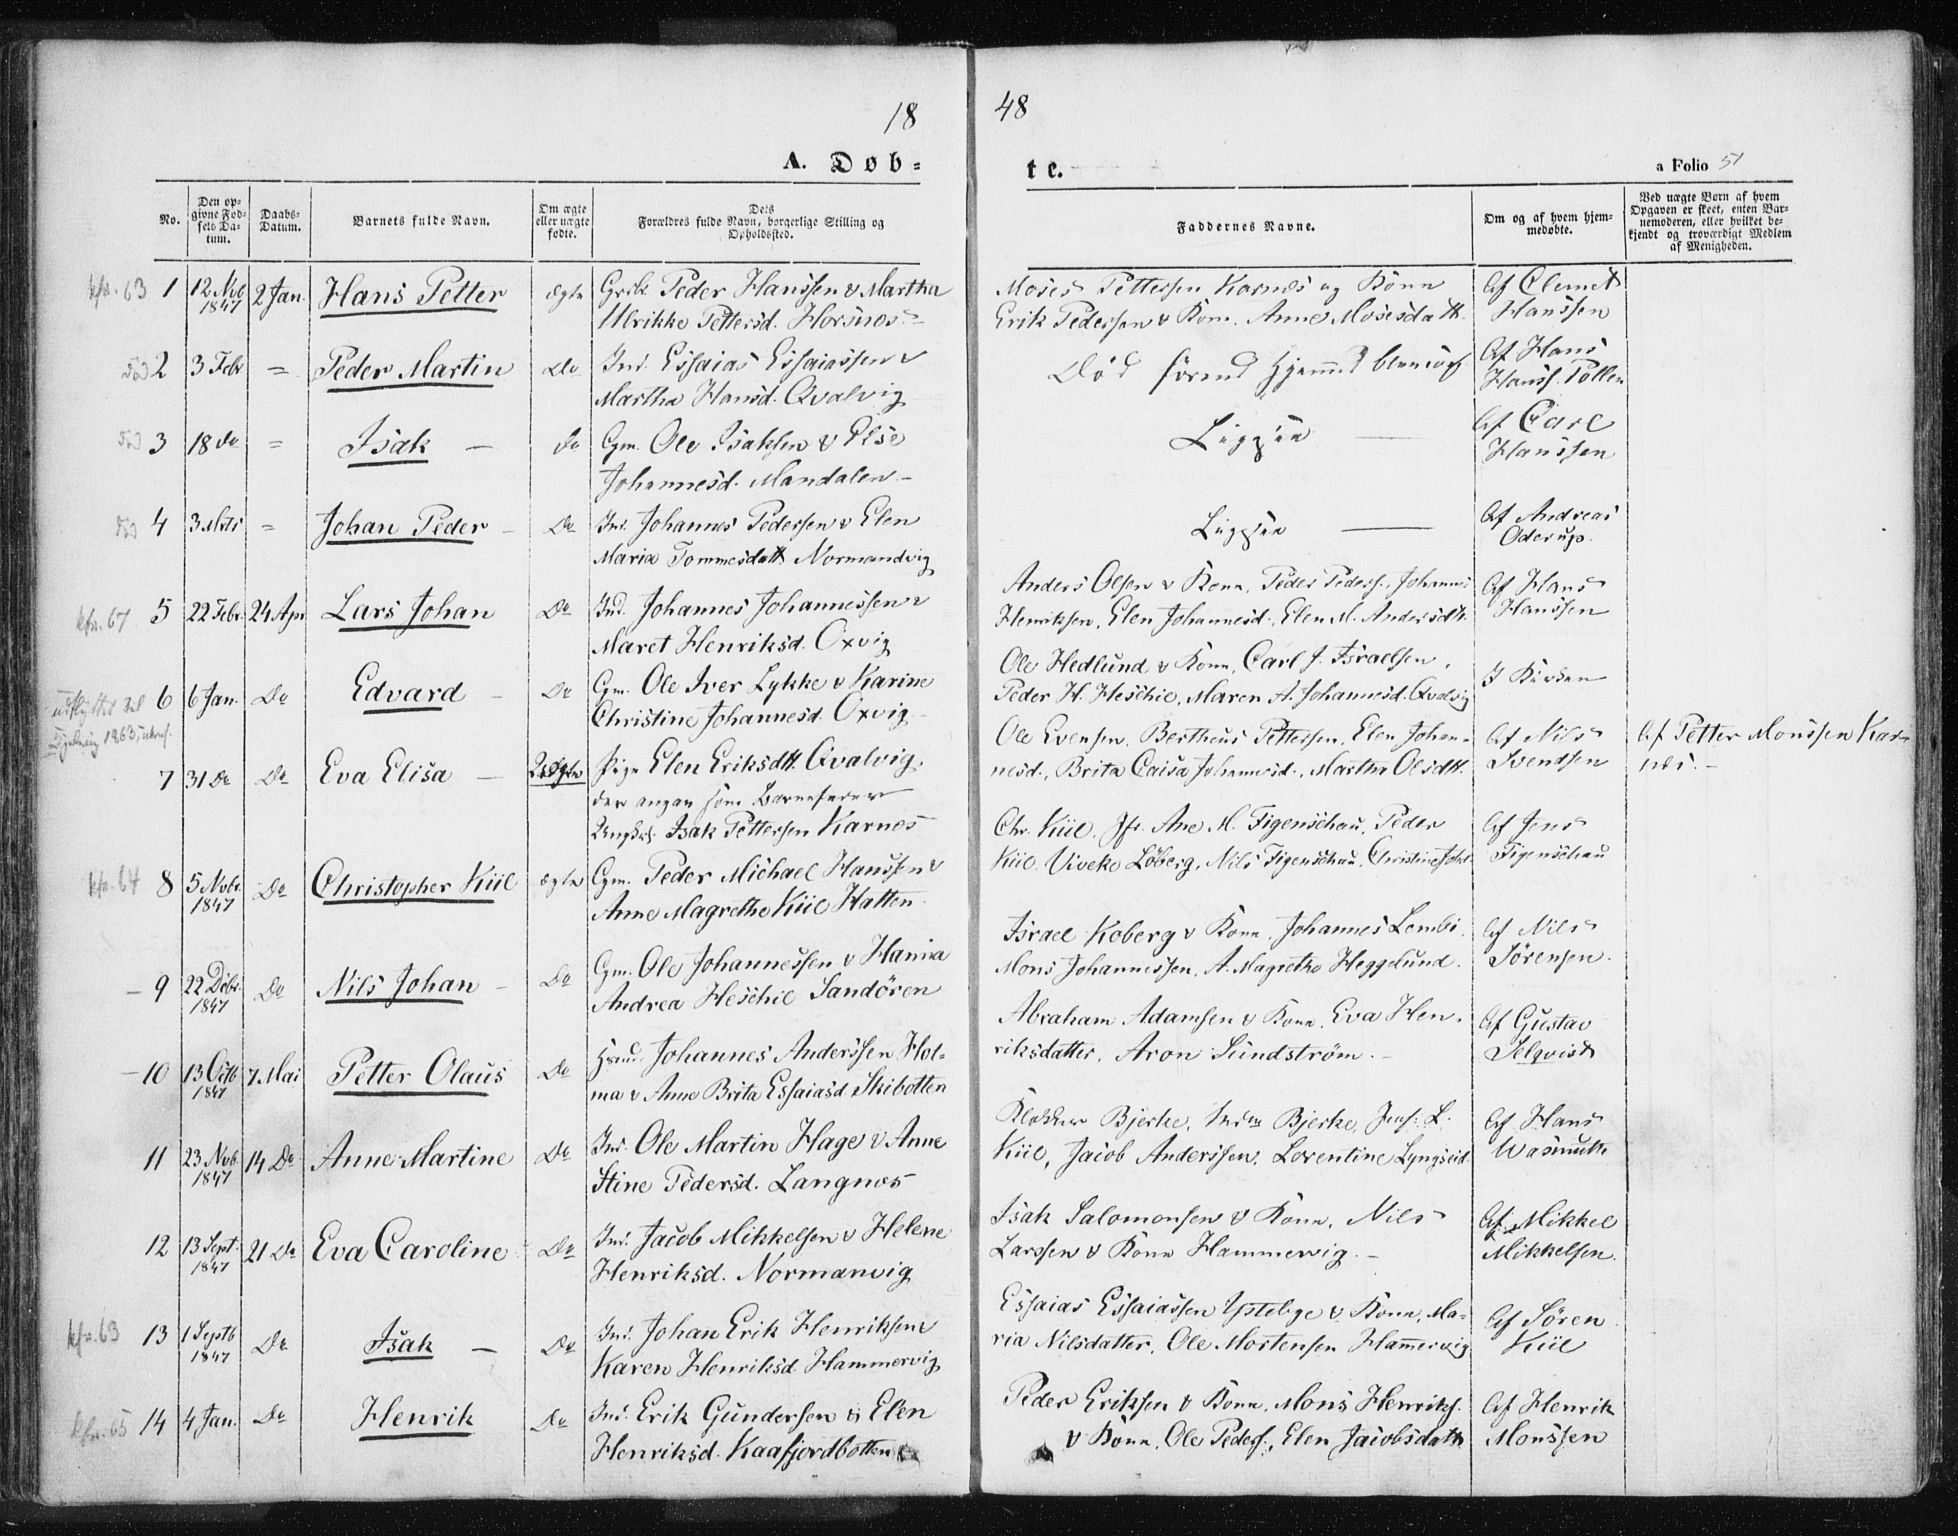 18
48
A. Døb-
te.
a Folio 51
No.
Den opgivne Fødsels Datum.
Daabs-Datum.
Barnets fulde Navn.
Om ægte eller uægte fødte.
Dets Forældres fulde Navn, borgerlige Stilling og Opholdssted.
Faddernes Navne.
Om og af hvem hjemmedøbte.
Ved uægte Børn af hvem Opgaven er skeet, enten Barnemoderen, eller hvilket bekjendt og troværdigt Medlem af Menigheden.
kfr. 63 1 12 Nvb 1847 2 Jan. Hans Petter ægte Peder Hanssen & Martha
Ulrikke Pettersd. Horsnæs.
Moses Pettersen Karnæs og Kone
Erik Pedersen & Kone. Anne Mosesdatt.
Af Clemet
Hanssen
død 2 3 Febr = Peder Martin Do Ind. Essaias Essaiassen &
Martha Hansd. Qvalvig
Død førend Hjemmed.
Af Hans
Hanss. Pollen
død 3 18 Do = Isak - Do Gm. Ole Isaksen & Else
Johannesd. Mandalen -
Af Carl
Hanssen
død 4 3 Mrts = Johan Peder - Do Ind. Johannes Pedersen & Elen
Maria Tommesdatt. Normandvig
Af Andreas
Oderup.
kfr. 67 5 22 Febr. 24 Apr Lars Johan Do Ind. Johannes Johannessen &
Maret Henriksd. Oxvig
Anders Olsen & Kone, Peder Peders., Johannes
Henriksen, Elen Johannesd., Elen M. Andersdtt.
Af Hans
Hanssen
udflyttet til
1863
6 6 Jan. Do Edvard - Do Gm. Ole Iver Lykke & Karine
Christine Johannesd. Oxvig
Ole Hedlund & Kone, Carl J. Israelsen,
Peder H. Heschie, Maren A. Johannesd. Qvalvig
I Kirken
7 31 Do Do Eva Elisa - Uægte Pige Elen Eriksdtt. Qvalvig,
der angav som Barnefader
Ungk. Isak Pettersen Karnes
Ole Evensen, Bertheus Pettersen, Elen Johan-
nesd., Brita Caisa Johannesd., Martha Olsdtt.
Af Nils
Svendsen
Af Petter Monssen Kar-
nes. -
kfr. 64 8 5 Nvbr. 1847 Do Christopher Kiil ægte Gm. Peder Michael Hanssen &
Anne Magrethe Kiil Hatten
Chr. Kiil, Jfr. Ane M. Figenschau, Peder
Kiil, Viveke Løberg, Nils Figenschau, Christine
Af Jens
Figenschau
- 9 22 Dcbr. 1847 Do Nils Johan - Do Gm. Ole Johannessen & Hanna
Andrea Heschie Sandören
Israel Koberg & Kone, Johannes Lembi,
Mons Johannessen, A. Magrethe Heggelund.
Af Nils
Sörensen.
- 10 13 Octb 1847 7 Mai Petter Olaus Do Johannes Anderssen Hol-
ma & Anne Brita Essaiasd. Skibotten
Abraham Adamsen & Kone, Eva Hen-
riksdatter, Aron Sundström. -
Af Gustav
Selqvist
11 23 Nvb. 1847 14 Do Anne Martine Do Ind. Ole Martin Hage & Anne
Stine Pedersd. Langnæs
Klokker Bjerke, Bjerke, L.
Kiil, Jacob Anderssen, Lorentine Lyngseid.
Af Hans
Wasmuth
12 13 Sept. 1847 21 Do Eva Caroline Do Ind. Jacob Mikkelsen & Helene
Henriksd. Normanvig
Isak Salomonsen & Kone, Nils
Larssen & Kone Hammervig. -
Af Mikkel
Mikkelsen.
kfr. 63 13 1 Septb 1847 Do Isak - Do Ind. Johan Erik Henriksen &
Karen Henriksd. Hammervig
Essaias Essaiassen & Kone, Ma-
ria Nilsdatter, Ole Mortensen Hammervig
Af Sören
Kiil
kfr. 65 14 4 Jan. Do Henrik Do Ind. Erik Gundersen & Elen
Henriksd. Kaafjordbotten
Peder Eriksen & Kone, Mons Henriks.
& Kone, Ole Peders., Elen Jacobsdatt.
Af Henrik
Monssen